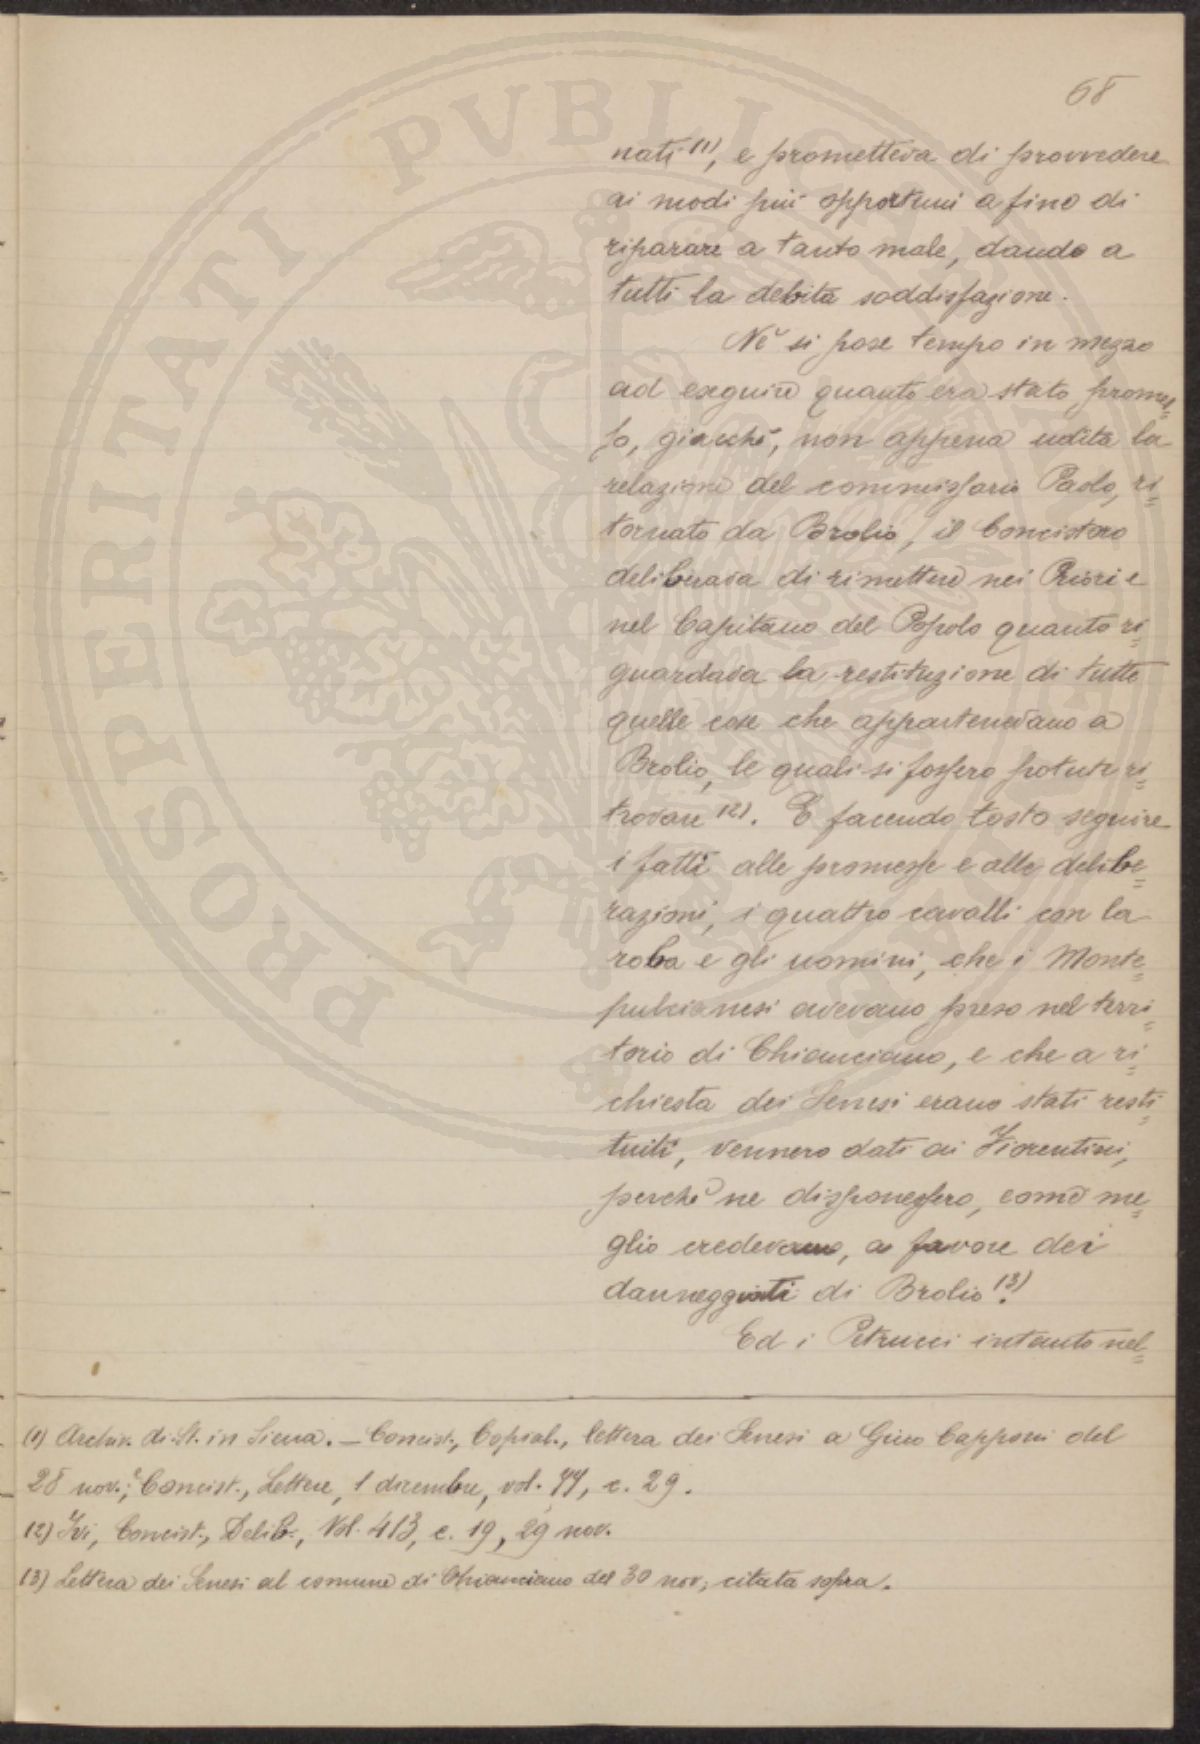 68
nati (1), e prometteva di provvedere
ai modi più opportuni a fine di
riparare a tanto male, dando a
tutti la debita soddisfazione.
Nè si pose tempo in mezzo
ad eseguire quanto era stato promes=
so, giacchè, non appena udita la
relazione del commissario Paolo, ri=
tornato da Brolio, il Concistoro
deliberava di rimettere nei Priori e
nel Capitano del Popolo quanto ri=
guardava la restituzione di tutte
quelle cose che appartenevano a
Brolio, le quali si fossero potute ri=
trovare (2). E facendo tosto seguire
i fatti alle promesse e alle delibe=
razioni, i quattro cavalli con la
roba e gli uomini, che i Monte=
pulcianesi avevano preso nel terri=
torio di Chianciano, e che a ri=
chiesta dei Senesi erano stati resti=
tuiti, vennero dati ai Fiorentini,
perchè ne disponessero, come me=
glio credevano, a favore dei
danneggiati di Brolio (3).
Ed i Petrucci intanto nel=
(1) Archiv. di St. in Siena. – Concist., Copial., lettera dei Senesi a Gino Capponi del
28 nov.; Concist., Lettere, 1 dicembre, vol. 77, c. 29.
(2) Ivi, Concist., Delib., Vol. 413, c. 19, 29 nov.
(3) Lettera dei Senesi al comune di Chianciano del 30 nov, citata sopra.
PROSPERITATI PVBLICAE